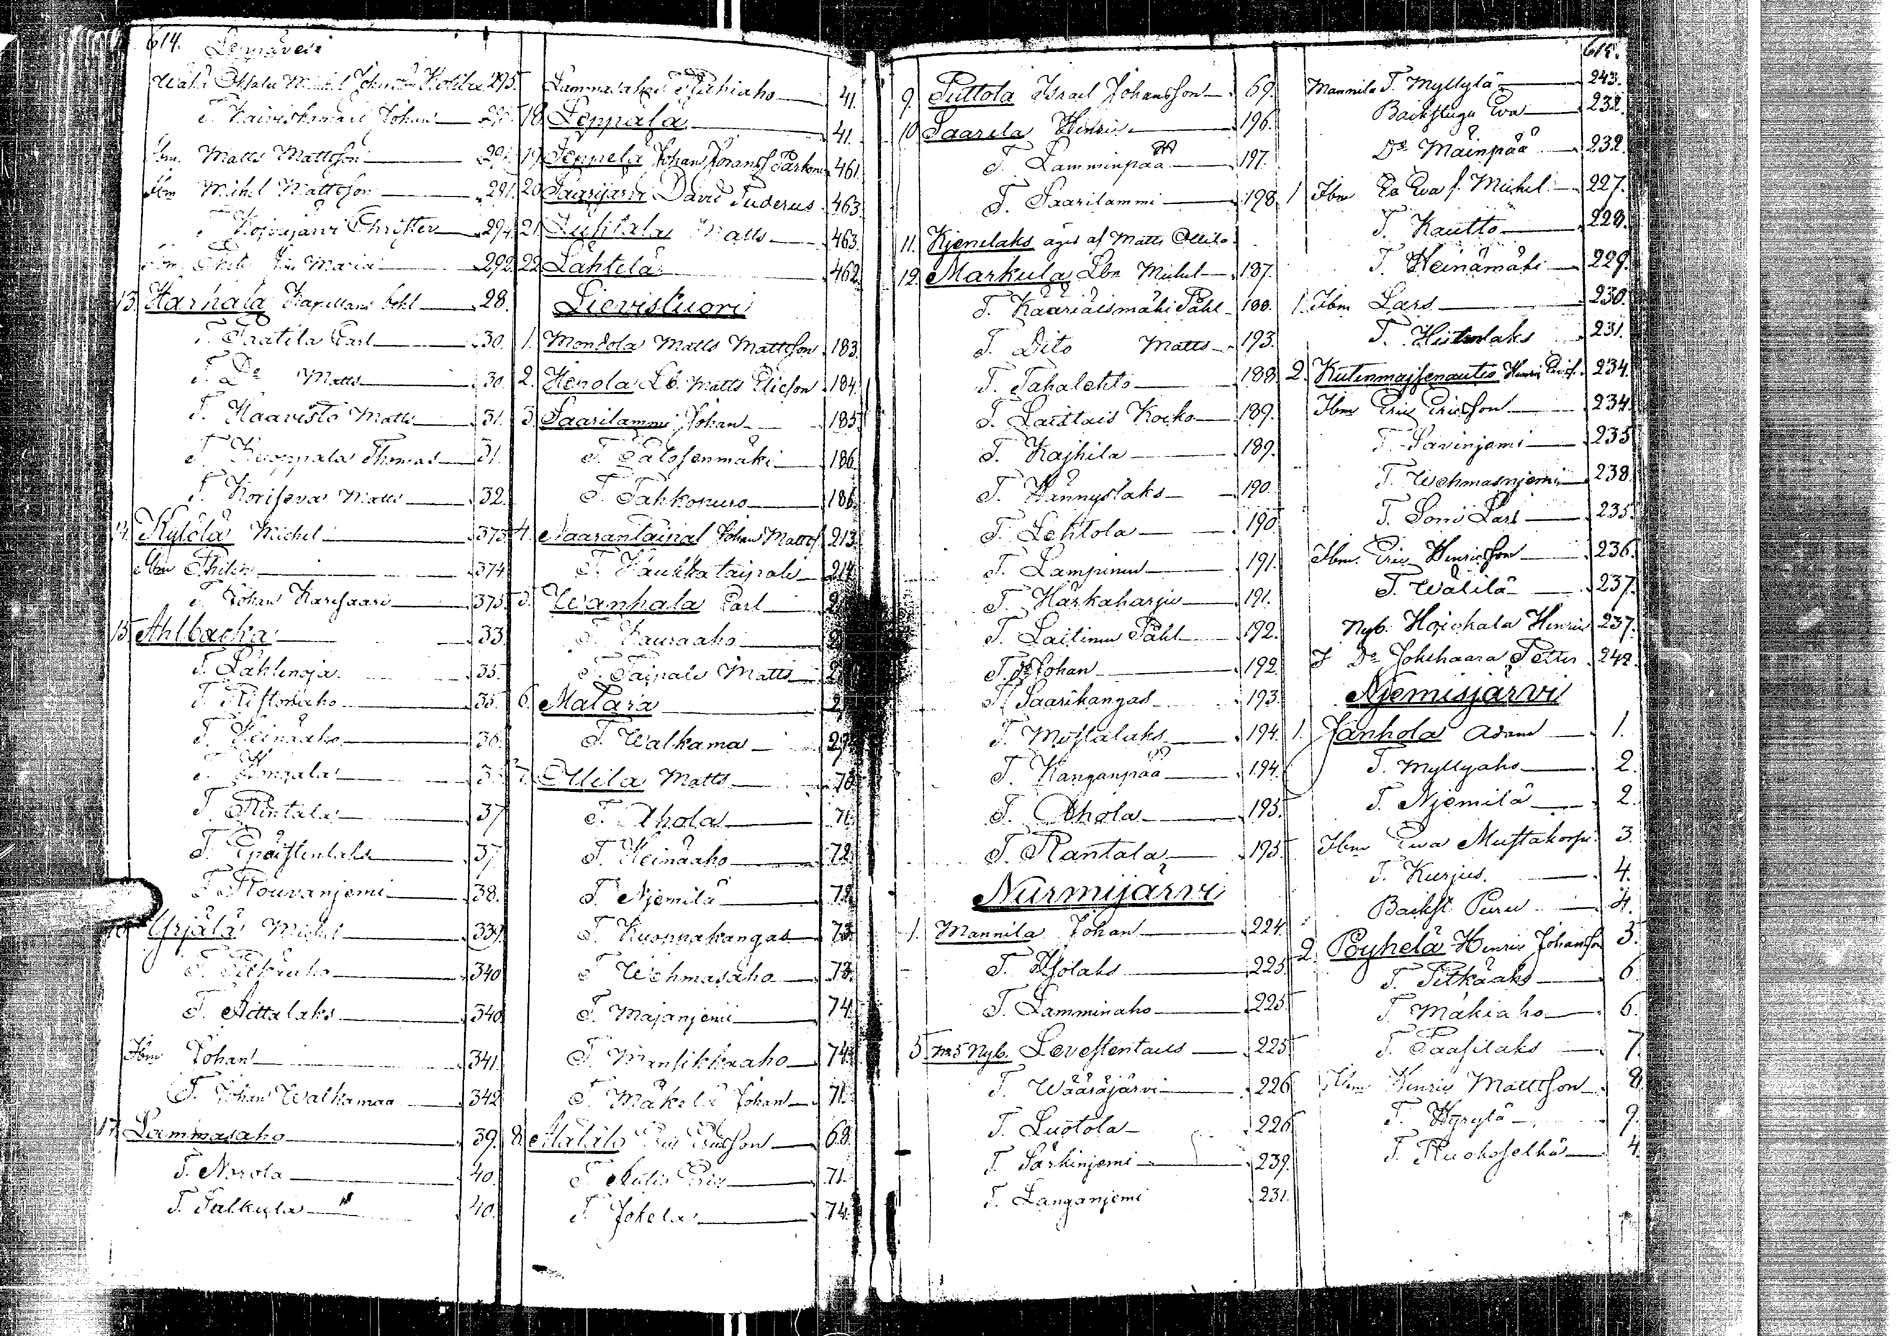 614.
Leppävesi
Michel 295.
T. Johan
Ibm. Matts Mattsson 291.
Ibm Michel Mattsson 291.
T. Christer 294.
Maria 292.
13. Harhala Kapellans bohl 28.
T. Taatila Carl 30.
T. Do Matts 30.
T. Haavisto Matts 31.
T. Kuoppala Thomas 31.
T. Matts 32.
14. Kylölä Michel 373.
Ibm 374.
T. Johan Karisaari 375.
15. Ahlbacka 33.
T. Lählnoja 35.
T. Ristonaho 35.
T. Heinäaho 36.
T. Hongala
T. Rintala 37
T. 37
T. Rouvanjemi 38.
Yrjälä Michel 339.
T. Pitkäaho 340
T. Aittalaks 340.
Ibm Johan 341.
T. Johan Walkamaa 342
17. Lammasaho 39.
T. Norola 40.
T. Talkula 40.
Lammasaho 41.
18. Leppälä 41.
19. Leppelä Johan 461.
20. Saarijärvi David Puderus 463.
21. Juhtala Matts 463.
22. Lähtelä 462.
Lievistuori
1. Mondola Matts Mattsson 183.
2. Henola Lb. Matts Ericson 184.
3. Saarilammi Johan 185.
T. Palosenmäki 186.
T. Tahkopuro 186.
4. Naarantaipal Johan Mattss. 213.
T. Kaukkataipale 214
5. Wanhala Carl
T. Kauraaho
T. Taipale Matts
6. Matara
T. Walkama 29
7. Ollila Matts 70
T. Ahola 71.
T. Heinäaho 72.
T. Njemilä 72.
T. Kuoppakangas 73.
T. Wehmasaho 73.
T. Majanjemi 74.
T. Mansikkaaho 74.
T. Mäkelä Johan 71.
8. Alatalo Eric Ericsson 68.
T. Eric 71.
T. Jokela 74.
9. Puttola Israel Johansson 69.
10. Saarela Henric 196.
T. Lamminpää 197.
T. Saarilammi 198.
11. Kjenelaks äges af Matts Ollila
12. Markula Lbn Michel 187.
T. Kääriäismäki Påhl 188.
T. Dito Matts 193.
T. Tahalehto 188.
T. Kocko 189.
T. Kajhila 189.
T. Hännyslaks 190.
T. Lehtola 190.
T. Lampinen 191.
T. Härkäharju 191.
T. Laitinen Påhl 192.
T. Do Johan 192.
T. Saarikangas 193.
T. Mostalaks 194.
T. Kanganpää 194.
T. Ahola 195.
T. Rantala 195
Nurmijärvi
1. Mannila Johan 224.
T. Asolaks 225
T. Lamminaho 225
5. No 5 Nyb. Levestentaus 225
T. Wääräjärvi 226.
T. Luotola 226
T. Särkinjemi 239.
T. Langanjemi 231.
615.
Mannila T. Myllylä 243.
Backstugu Eva 232.
Do Mäinpää 232.
1 Ibm Eva s. Michel 227.
T. Kautto 228.
T. Heinämäki 229.
1. Ibm Lars 230.
T. 231.
2. Kutenmajsenautio Henric 234.
Ibm Eric Ericsson 234.
T. Savinjemi 235
T. Wehmasnjemi 238.
T. Somi Lars 235.
Ibm. Eric Henricsson 236.
T. Wälilä 237.
Nyb. Hojchala Henric 237.
T Do Jokihaara Petter 242.
Njemisjärvi
1. Janhola Adam 1.
T. Myllyaho 2.
T. Njemilä 2.
Ibm Ewa Mustakorpi 3.
T. Kurjus 4.
Backst. Puru 4.
2. Pöyhelä Henric Johansson 5.
T. Pitkäaho 6.
T. Mäkiaho 6.
T. Paasilaks 7.
Ibm Henric Mattsson 8.
T. Hyrylä 9.
T. Ruokoselkä 4.